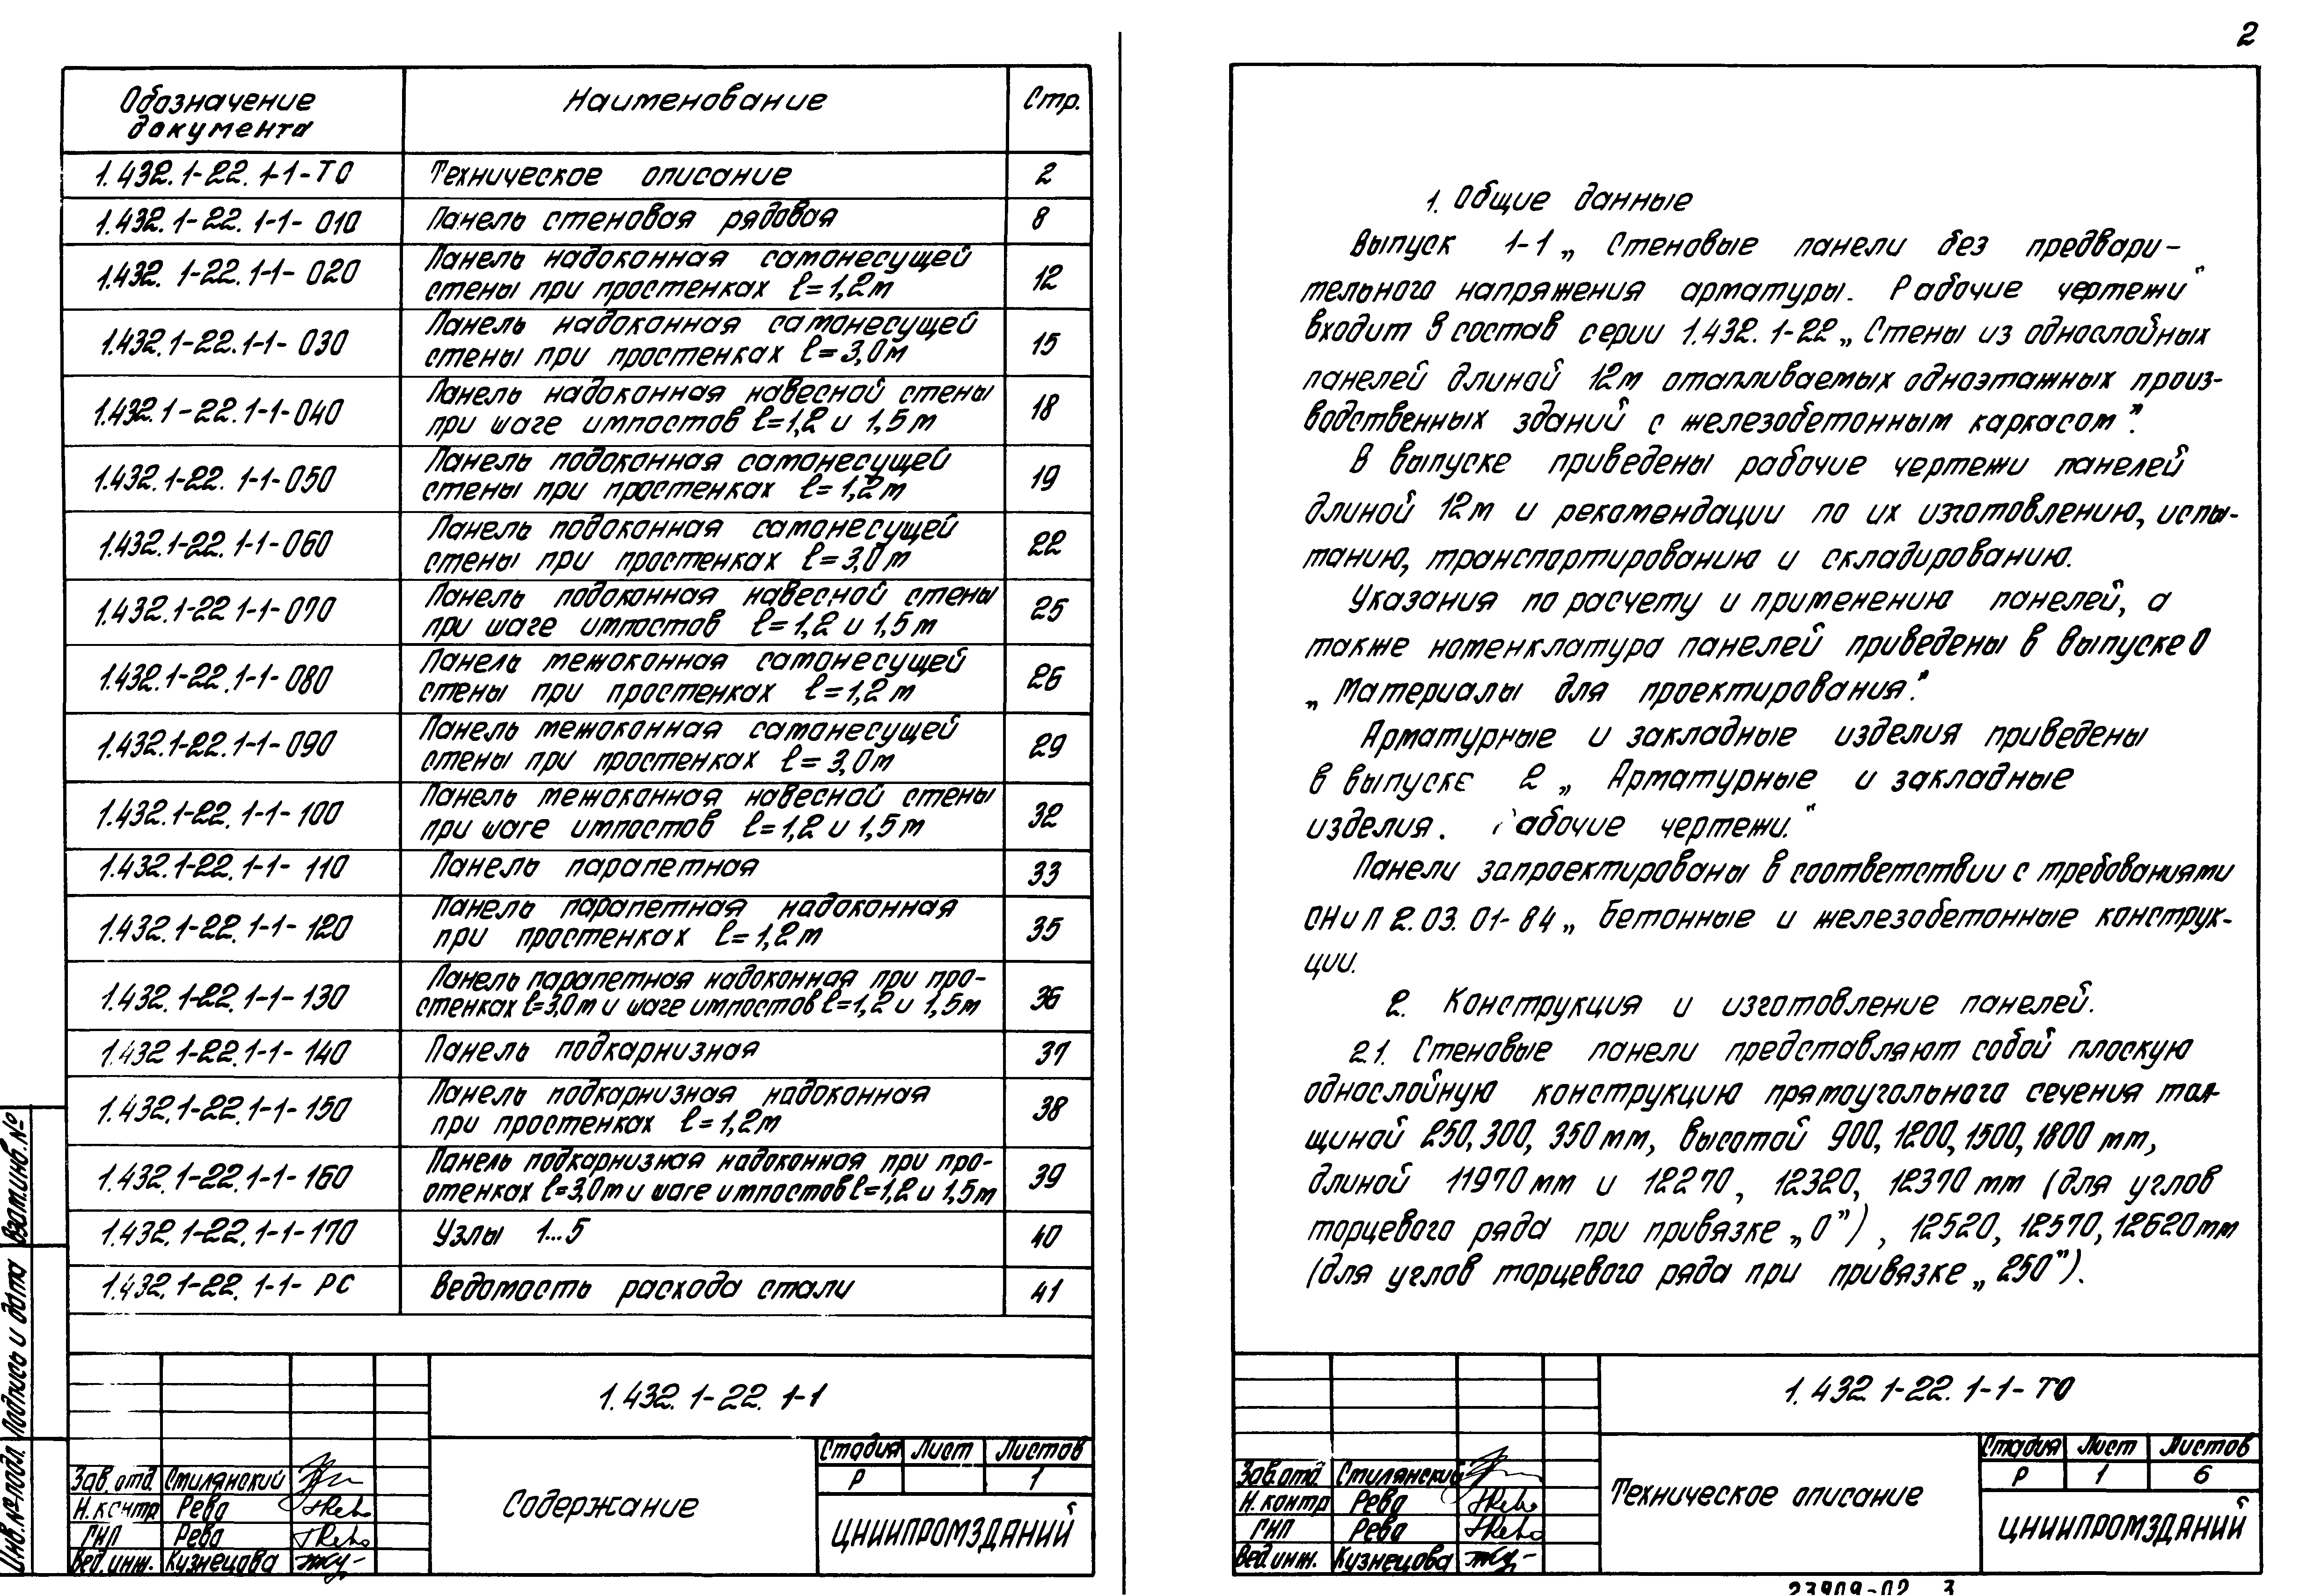 Обозначение
документа
Наименование
Стр.
1.432.1-22.1-1-ТО Техническое описание 2
1.432.1-22.1-1-010 Панель стеновая рядовая 8
1.432.1-22.1-1-020 Панель надоконная самонесущей
стены при простенках ℓ=1,2м 12
1.432.1-22.1-1-030 Панель надоконная самонесущей
стены при простенках ℓ=3,0м 15
1.432.1-22.1-1-040 Панель надоконная навесной стены
при шаге импостов ℓ=1,2 и 1,5м 18
1.432.1-22.1-1-050 Панель подоконная самонесущей
стены при простенках ℓ=1,2м 19
1.432.1-22.1-1-060 Панель подоконная самонесущей
стены при простенках ℓ=3,0м 22
1.432.1-22 1-1-070 Панель подоконная навесной стены
при шаге импостов ℓ=1,2 и 1,5м 25
1.432.1-22.1-1-080 Панель межоконная самонесущей
стены при простенках ℓ=1,2м 26
1.432.1-22.1-1-090 Панель межоконная самонесущей
стены при простенках ℓ=3,0м 29
1.432.1-22.1-1-100 Панель межоконная навесной стены
при шаге импостов ℓ=1,2 и 1,5м 32
1.432.1-22.1-1-110 Панель парапетная 33
1.432.1-22.1-1-120 Панель парапетная надоконная
при простенках ℓ=1,2м 35
1.432.1-22.1-1-130 Панель парапетная надоконная при про-
стенках ℓ=3,0м и шаге импостов ℓ=1,2 и 1,5м 36
1.432 1-22.1-1-140 Панель подкарнизная 37
1.432.1-22.1-1-150 Панель подкарнизная надоконная
при простенках ℓ=1,2м 38
1.432.1-22.1-1-160 Панель подкарнизная надоконная при про-
стенках ℓ=3,0м и шаге импостов ℓ=1,2 и 1,5м 39
1.432.1-22.1-1-170 Узлы 1...5 40
1.432.1-22.1-1-РС Ведомость расхода стали 41
Взам.инв.№
Подпись и дата
Инв.№ подл.
1.432.1-22.1-1
Зав.отд. Стилянский
Н.контр Рева
ГИП Рева
Вед.инж. Кузнецова
Содержание
Стадия Лист Листов
Р 1
ЦНИИПРОМЗДАНИЙ
2
1. Общие данные
Выпуск 1-1 „Стеновые панели без предвари-
тельного напряжения арматуры. Рабочие чертежи"
входит в состав серии 1.432.1-22 „Стены из однослойных
панелей длиной 12м отапливаемых одноэтажных произ-
водственных зданий с железобетонным каркасом".
В выпуске приведены рабочие чертежи панелей
длиной 12м и рекомендации по их изготовлению, испы-
танию, транспортированию и складированию.
Указания по расчету и применению панелей, а
также номенклатура панелей приведены в выпуске 0
„Материалы для проектирования".
Арматурные и закладные изделия приведены
в выпуске 2 „Арматурные и закладные
изделия. Рабочие чертежи."
Панели запроектированы в соответствии с требованиями
СНиП 2.03.01-84 „Бетонные и железобетонные конструк-
ции.
2. Конструкция и изготовление панелей.
2.1. Стеновые панели представляют собой плоскую
однослойную конструкцию прямоугольного сечения тол-
щиной 250,300,350мм, высотой 900,1200,1500,1800 мм,
длиной 11970мм и 12270, 12320, 12370мм (для углов
торцевого ряда при привязке „0"), 12520, 12570, 12620мм
(для углов торцевого ряда при привязке „250").
1.432 1-22.1-1-ТО
Зав.отд. Стилянский
Н.контр Рева
ГИП Рева
Вед.инж. Кузнецова
Техническое описание
Стадия Лист Листов
Р 1 6
ЦНИИПРОМЗДАНИЙ
23909-02 3